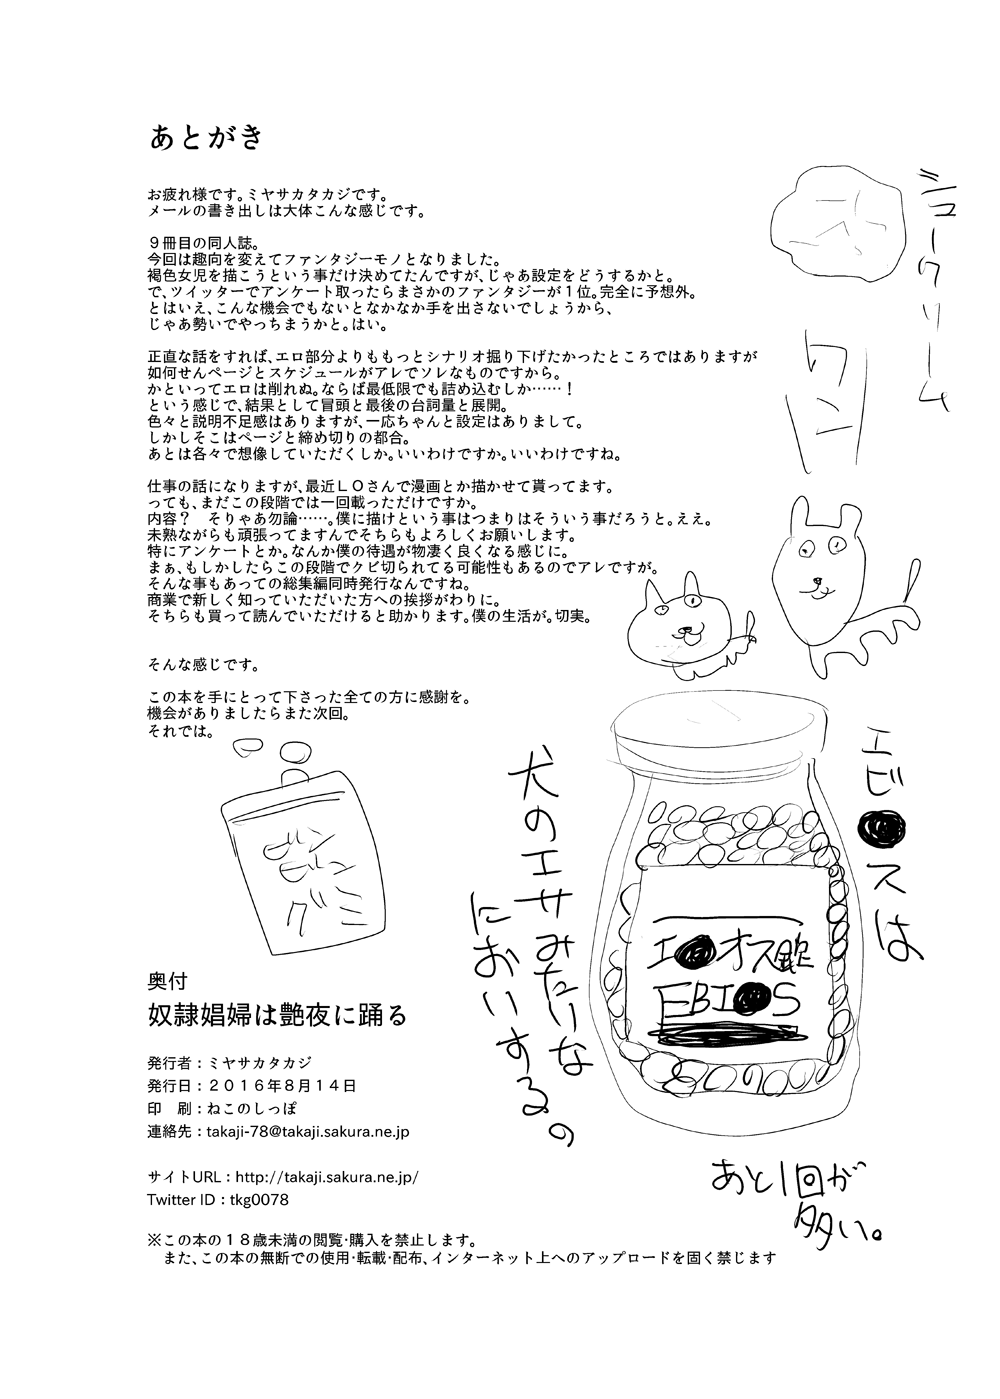 あとがき
お疲れ様です。ミヤサカタカジです。
メールの書き出しは大体こんな感じです。
9冊目の同人誌。
今回は趣向を変えてファンタジーモノとなりました。
褐色女児を描こうという事だけ決めてたんですが、じゃあ設定をどうするかと。
で、ツイッターでアンケート取ったらまさかのファンタジーが1位。完全に予想外。
とはいえ、こんな機会でもないとなかなか手を出さないでしょうから、
じゃあ勢いでやっちまうかと。はい。
正直な話をすれば、エロ部分よりももっとシナリオ掘り下げたかったところではありますが
如何せんページとスケジュールがアレでソレなものですから。
かといってエロは削れぬ。ならば最低限でも詰め込むしか……!
という感じで、結果として冒頭と最後の台詞量と展開。
色々と説明不足感はありますが、一応ちゃんと設定はありまして。
しかしそこはページと締め切りの都合。
あとは各々で想像していただくしか。いいわけですか。いいわけですね。
仕事の話になりますが、最近LOさんで漫画とか描かせて貰ってます。
っても、まだこの段階では一回載っただけですか。
内容? そりゃあ勿論……。僕に描けという事はつまりはそういう事だろうと。ええ。
未熟ながらも頑張ってますんでそちらもよろしくお願いします。
特にアンケートとか。なんか僕の待遇が物凄く良くなる感じに。
まぁ、もしかしたらこの段階でクビ切られてる可能性もあるのでアレですが。
そんな事もあっての総集編同時発行なんですね。
商業で新しく知っていただいた方への挨拶がわりに。
そちらも買って読んでいただけると助かります。僕の生活が。切実。
そんな感じです。
この本を手にとって下さった全ての方に感謝を。
機会がありましたらまた次回。
それでは。
シュークリーム
ワン
エビ●スは
犬のエサみたいな
においするの
エ●オス錠
EBI●S
グミ
あと1回が
多い。
奥付
奴隷娼婦は艶夜に踊る
発行者:ミヤサカタカジ
発行日:2016年8月14日
印 刷:ねこのしっぽ
連絡先:takaji-78@takaji.sakura.ne.jp
サイトURL:http://takaji.sakura.ne.jp/
Twitter ID:tkg0078
※この本の18歳未満の閲覧・購入を禁止します。
また、この本の無断での使用・転載・配布、インターネット上へのアップロードを固く禁じます